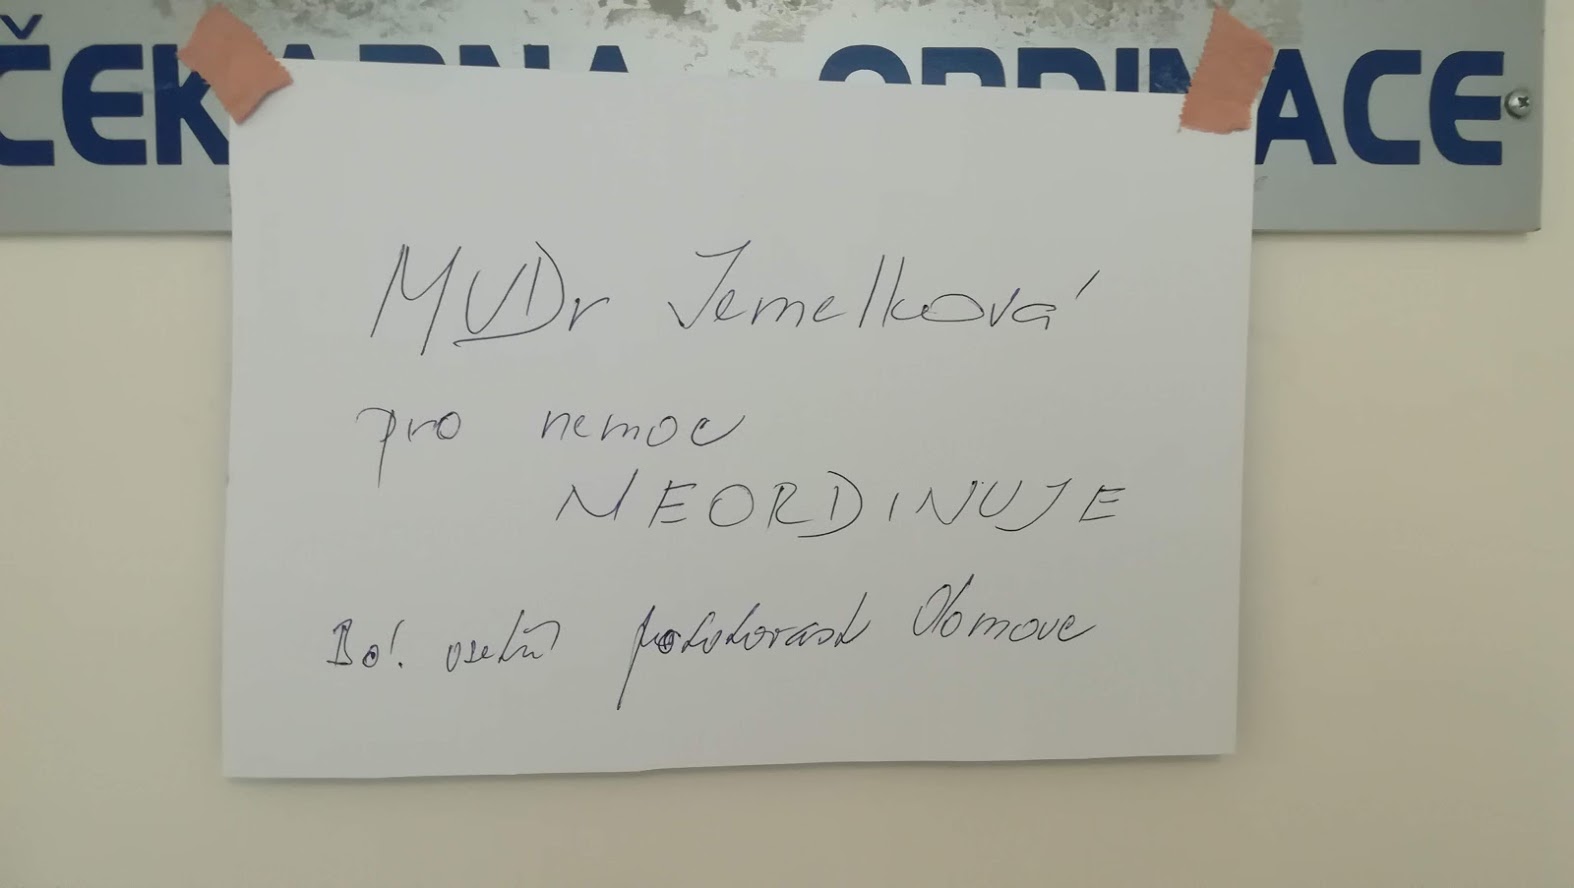 ČEKÁRNA - ORDINACE
MUDr Jemelková
pro nemoc
NEORDINUJE
ošetří pohotovost Olomouc